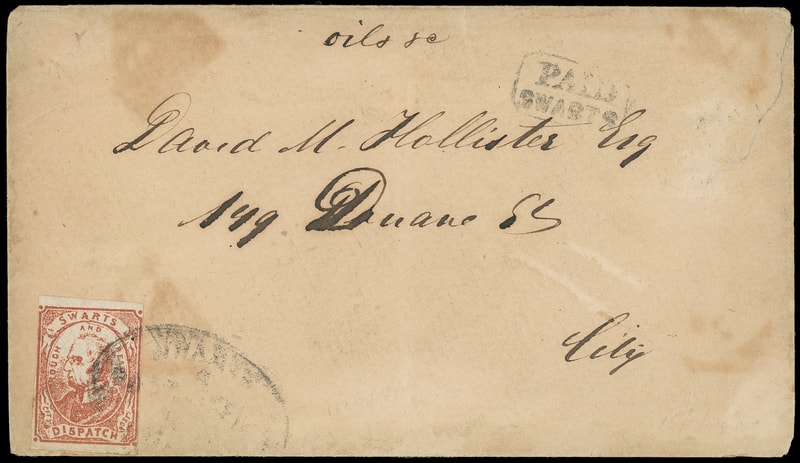 oils &c
PAID
SWARTS
David M. Hollister Esq
149 Duane St
City
SWARTS
AND
ROUGH
READY
CITY
DISPATCH
SWARTS